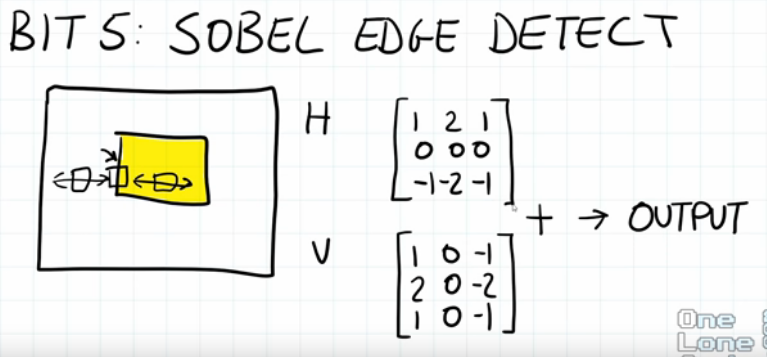 BIT 5: SOBEL EDGE DETECT
H
1 2 1
0 0 0
-1 -2 -1
+ → OUTPUT
V
1 0 -1
2 0 -2
1 0 -1
One
Lone